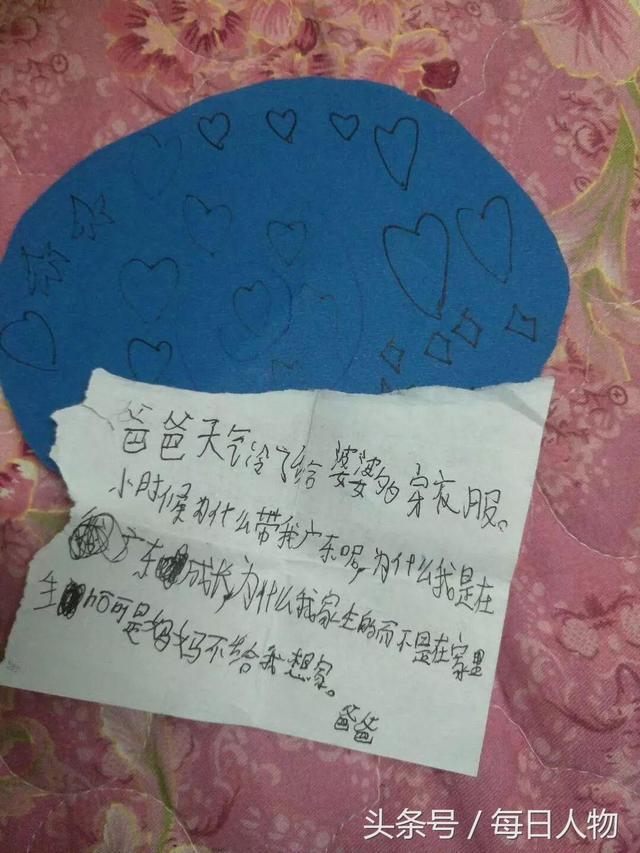 爸爸天气冷了给婆婆的穿衣服。
小时候为什么带我广东呢,为什么我是在
广东成长,为什么我家生的而不是在家里
生 可是妈妈不给我想家。
爸爸
头条号 / 每日人物